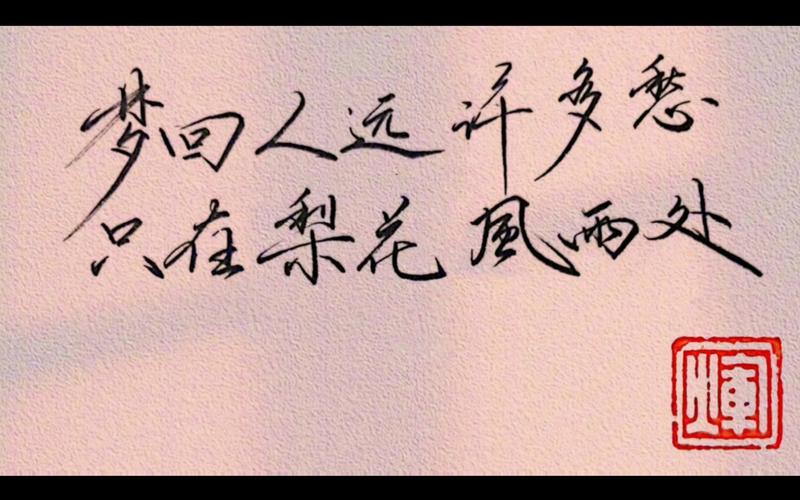 梦回人远许多愁
只在梨花風雨处
煇